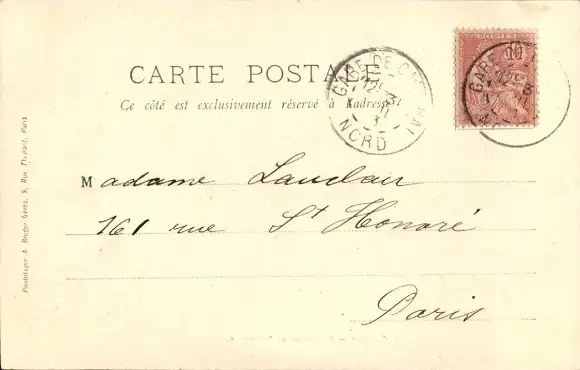 CARTE POSTALE
Ce côté est exclusivement réservé à l'adresse
GARE DE CAMBRAI
NORD
POSTES
10
GARE
Madame Lauclair
161 rue St Honoré
Paris
Phototypie A. Berger frères, 9, Rue Thénard, Paris